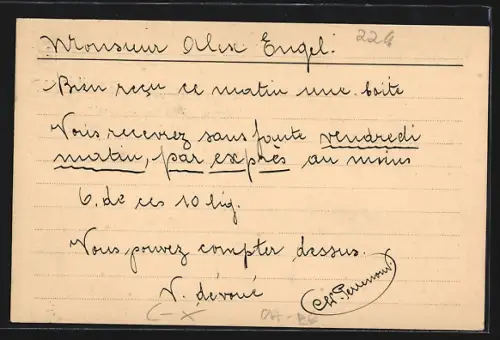 Monsieur Alex Engel. 224
Bien reçu ce matin une boite
Vous recevrez sans faute vendredi
matin, par exprès au moins
6. de ces 10 lig.
Vous pouvez compter dessus.
V. dévoué
C-X